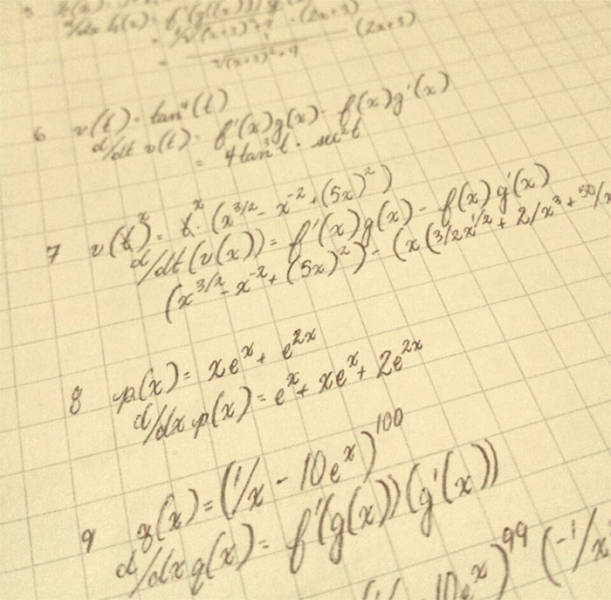 6 v(t) = tan⁴(t)
d/dt v(t) = f'(x)g(x) - f(x)g'(x)
= 4tan³t · sec²t
7 v(x) = x · (x^3/2 - x^-2 + (5x)²)
d/dt(v(x)) = f'(x)g(x) - f(x)g'(x)
(x^3/2 - x^-2 + (5x)²) - (x(3/2x^1/2 + 2/x³ + 50/x
8 p(x) = xe^x + e^2x
d/dx p(x) = e^x + xe^x + 2e^2x
9 q(x) = (1/x - 10e^x)^100
d/dx q(x) = f'(g(x))(g'(x))
10e^x)^99 (-1/x